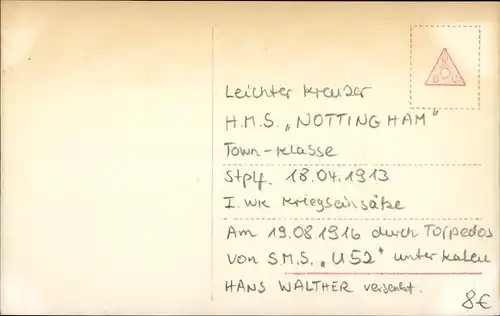 Leichter Kreuzer
H.M.S. „NOTTINGHAM"
Town-Klasse
Stplf. 18.04.1913
I. WK Kriegseinsätze
Am 19.08.1916 durch Torpedos
von S.M.S. „U52" unter KaLeu
HANS WALTHER versenkt.
8€